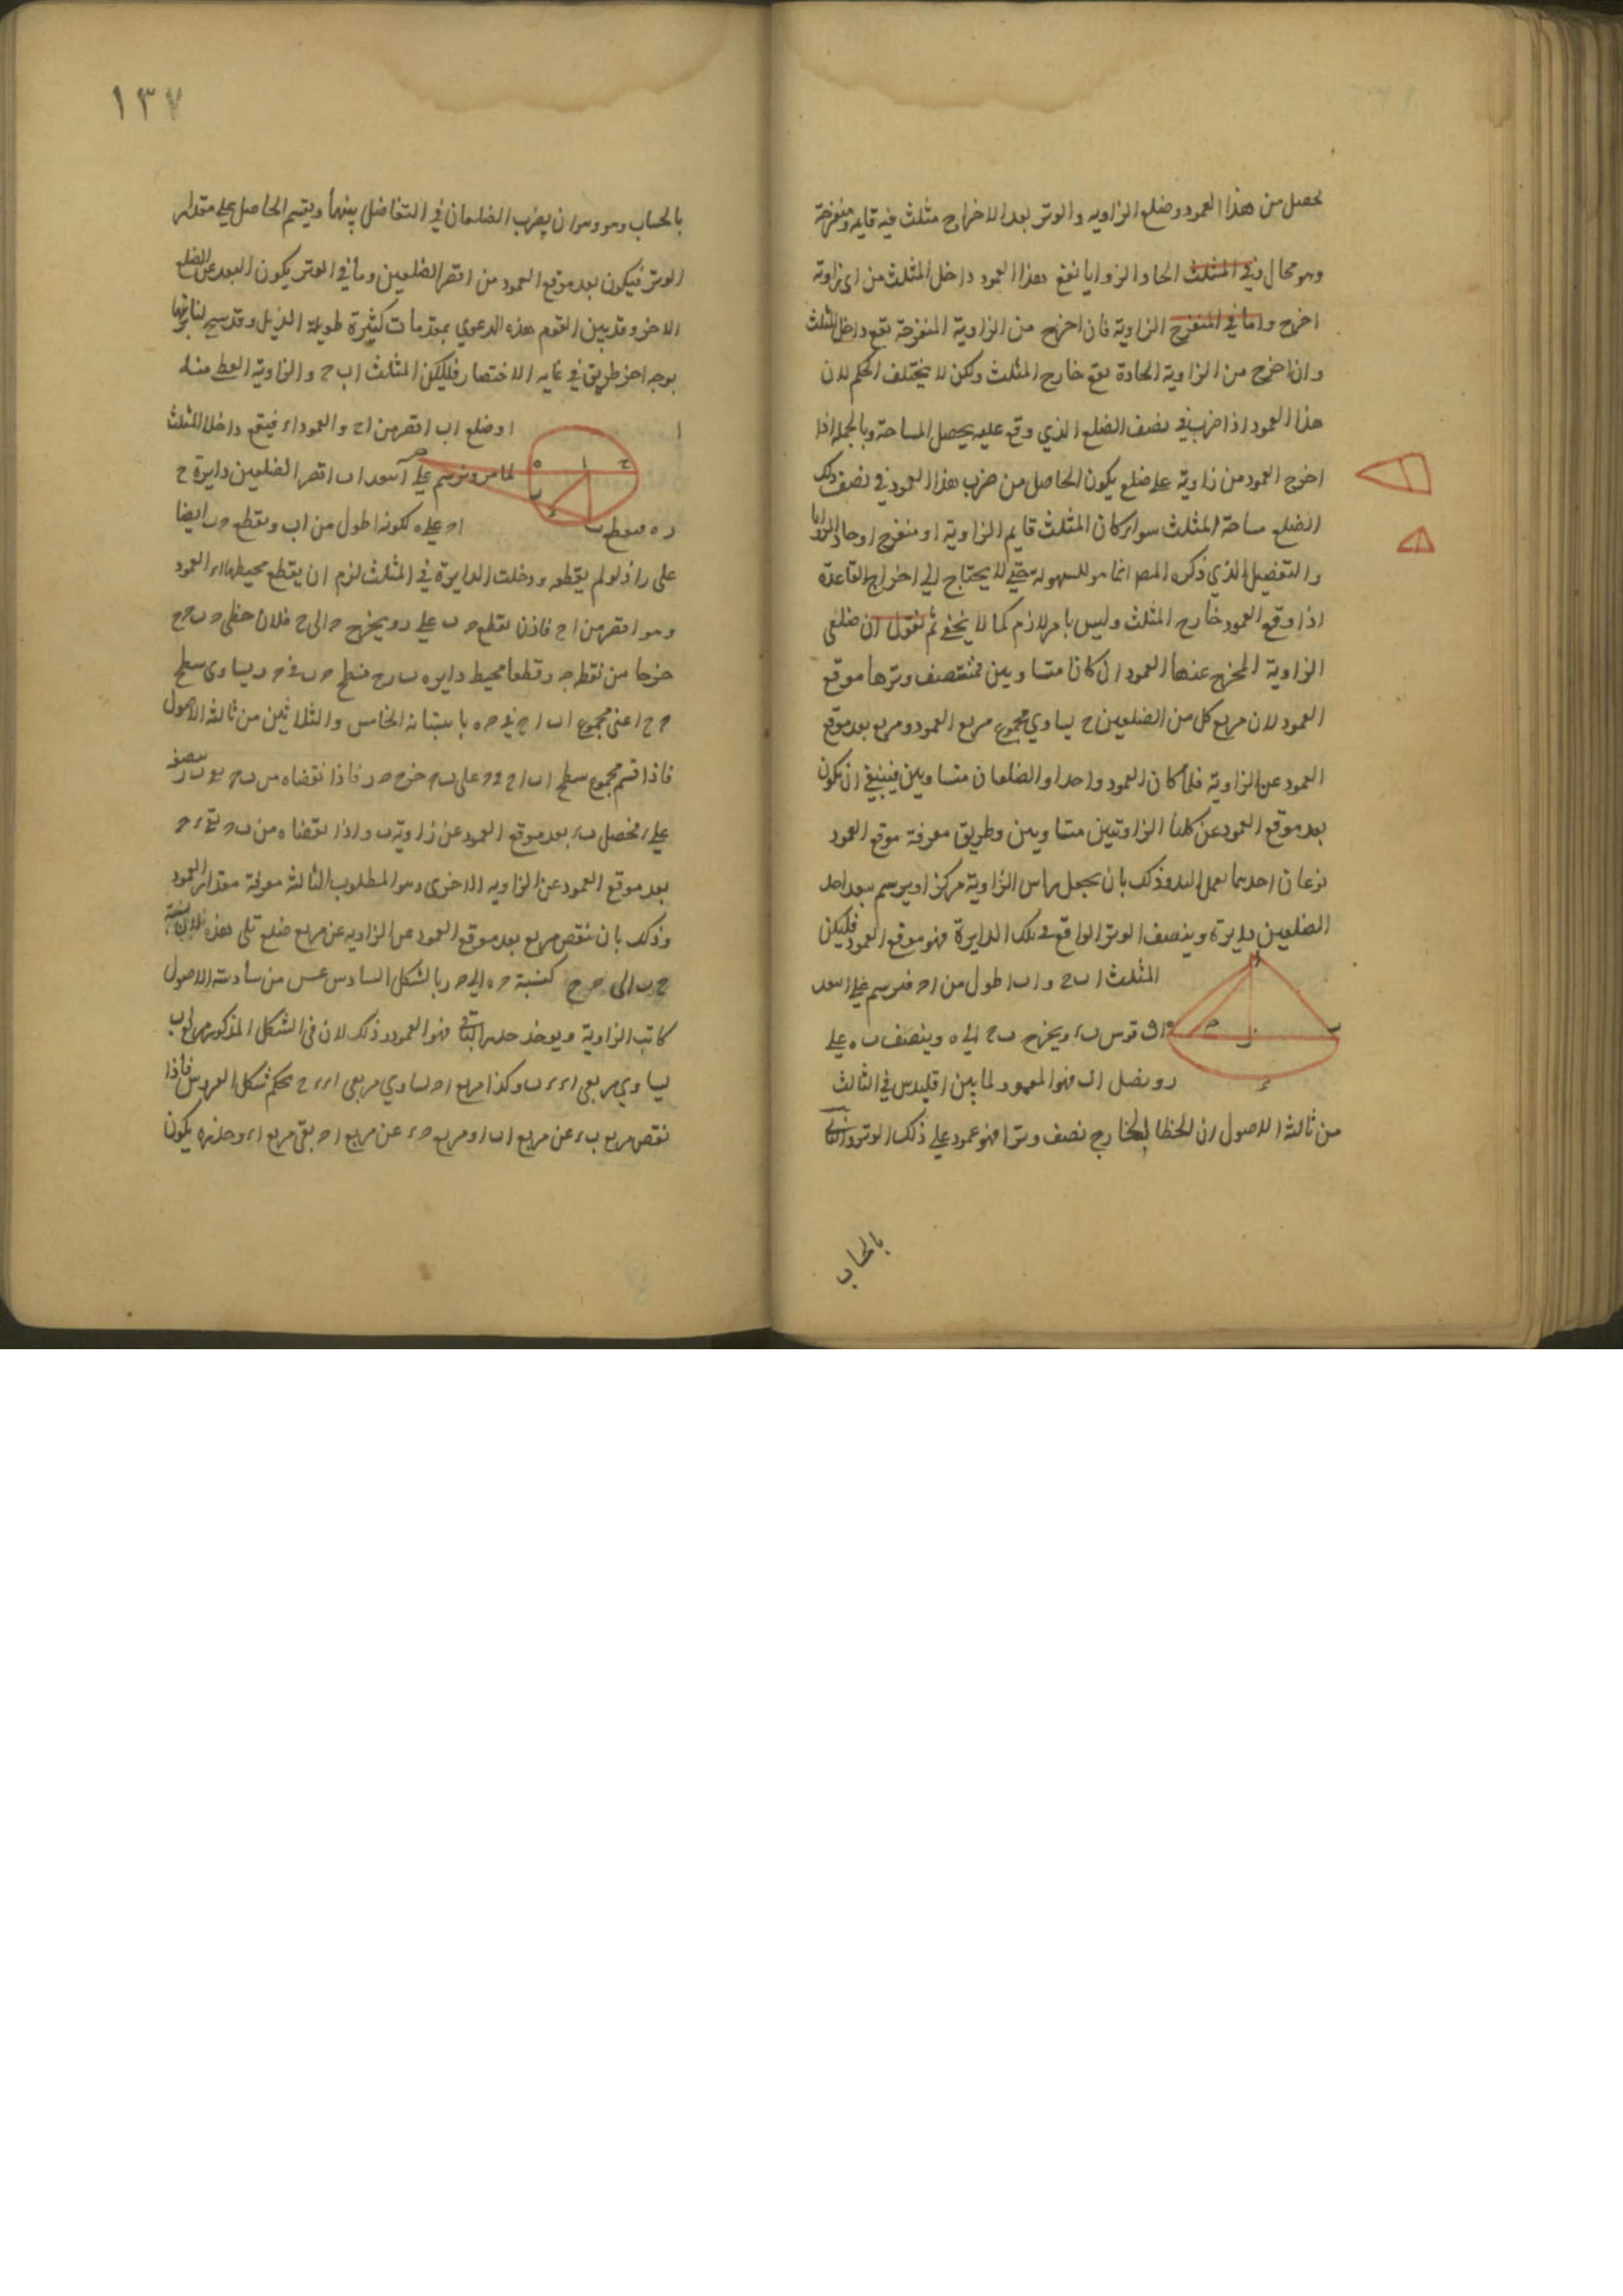 يحصل من هذا العمود وضلع الزاويه والوتر بعد الاخراج مثلث فيه قايمه ومنفرجة
وهو محال وفي المثلث الحاد الزوايا نقع هذا العمود داخل المثلث من اى زاوية
اخرج واما في المنفرج الزاوية فان اخرج من الزاوية المنفرجة يقع داخل المثلث
وان اخرج من الزاوية الحادة يقع خارج المثلث ولكن لا يختلف الحكم لان
هذا العمود اذا ضرب في نصف الضلع الذي وقع عليه يحصل المساحة وبالجملة اذا
اخرج العمود من زاوية على ضلع يكون الحاصل من ضرب هذا العمود في نصف ذلك
الضلع مساحة المثلث سواء كان المثلث قايم الزاوية او منفرج او حاد الزوايا
والتفصيل الذي ذكره المص انما هو للسهولة حتى لا يحتاج الى اخراج القاعدة
اذا وقع العمود خارج المثلث وليس بامر لازم كما لا يخفى ثم نقول ان ضلعى
الزاوية المخرج عنها العمود ان كانا متساويين فمنتصف وترها موقع
العمود لان مربع كل من الضلعين ح يساوي مجموع مربع العمود ومربع بعد موقع
العمود عن الزاوية فلما كان العمود واحدا والضلعان متساويين فينبغي ان يكون
بعد موقع العمود عن كلتا الزاويتين متساويين وطريق معرفة موقع العمود
نوعان احدهما بعمل اليد وذلك بان يجعل راس الزاوية مركزا ويرسم ببعد احد
الضلعين دايرة وينصف الوتر الواقع في تلك الدايرة فهو موقع العمود فليكن
المثلث ا ب ح و ا ب اطول من ا ح فنرسم على ا ببعد
ا ب قوس ب ء ويخرج ب ح الى ه وينصف ب ه على
ر ونصل ا ر فهو العمود لما بين اقليدس في الثالث
من ثالثة الاصول ان الخط الخارج نصف وترا فهو عمود على ذلك الوتر والثاني
بالحساب
١٣٧
بالحساب وهو ان يضرب الضلعان في التفاضل بينهما ويقسم الحاصل على مقدار
الوتر فيكون بعد موقع العمود من اقصر الضلعين وما في الوتر يكون البعد عن الضلع
الاخر وقد بين القوم هذه الدعوي بمقدمات كثيرة طويلة الذيل وقد سنح لنا
بوجه اخر طريق في غايه الاختصار فليكن المثلث ا ب ح والزاوية العظمى منه
ا وضلع ا ب اقصر من ا ح والعمود ا ء فيقع داخل المثلث
لما مر ونرسم على ا ببعد ا ب اقصر الضلعين دايرة ح
ا ح على ه لكونه اطول من ا ب ويقطع ح ب ايضا
على ر اذ لو لم يقطعه ودخلت الدايرة في المثلث لزم ان يقطع محيطها ا ء العمود
وهو اقصر من ا ح فاذن يقطع ح ب على ر ويخرج ح ا الى ح فلان خطى ح ب ح ح
خرجا من نقطة ح وقطعا محيط دايره ه ب ر ح فسطح ح ب في ح ر يساوى سطح
ح ح اعنى مجموع ا ب ا ح في ح ه باستبانة الخامس والثلاثين من ثالثة الاصول
فاذا قسم مجموع سطح ا ب ا ح على ب ح خرج ح ر فاذا نقصناه من ب ح يبقى ب ر ننصفه
على ء فحصل ب ء بعد موقع العمود عن زاوية ب واذا نقصناه من ب ح بقي ء ح
بعد موقع العمود عن الزاويه الاخرى وهو المطلوب الثالثة معرفة مقدار العمود
وذلك بان ننقص مربع بعد موقع العمود عن الزاويه عن مربع ضلع تلى هذه
ح ب الى ح ح كنسبة ح ه الى ح ر بالشكل السادس عشر من سادسة الاصول
الزاوية ويوخذ جذر الباقي فهو العمود وذلك لان فى الشكل المذكور مربع ا ب
يساوي مربعى ا ء ء ب وكذا مربع ا ح يساوي مربعى ا ء ء ح بحكم شكل العروس فاذا
نقص مربع ب ء عن مربع ا ب او مربع ح ء عن مربع ا ح بقي مربع ا ء وجذره يكون